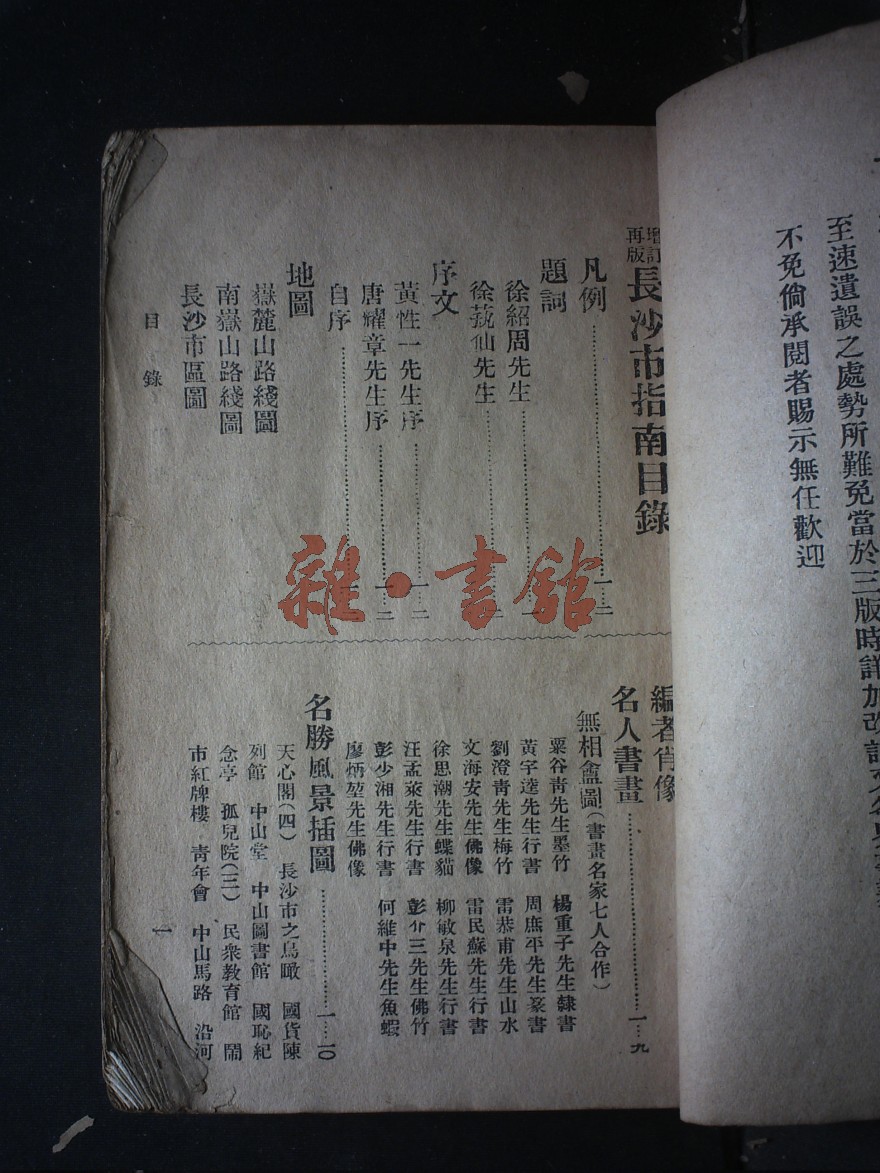 至速遺誤之處勢所難免當於三版時詳加改訂
不免倘承閱者賜示無任歡迎
增訂再版長沙市指南目錄
凡例……一…二
題詞
徐紹周先生……一
徐菰仙先生……二
序文
黃性一先生序……一…二
唐耀章先生序……一…二
自序
地圖
嶽麓山路綫圖
南嶽山路綫圖
長沙市區圖
編者肖像
名人書畫……一…九
無相盦圖(書畫名家七人合作)
粟谷靑先生墨竹 楊重子先生隸書
黃宇逵先生行書 周庶平先生篆書
劉澄靑先生梅竹 雷恭甫先生山水
文海安先生佛像 雷民蘇先生行書
徐思潮先生蝶貓 柳敏泉先生行書
汪孟萊先生行書 彭介三先生佛竹
彭少湘先生行書 何維中先生魚蝦
廖炳堃先生佛像
名勝風景插圖……一…一〇
天心閣(四) 長沙市之鳥瞰 國貨陳
列館 中山堂 中山圖書館 國恥紀
念亭 孤兒院(三) 民衆教育館 鬧
市紅牌樓 靑年會 中山馬路 沿河
目錄
一
雜·書館